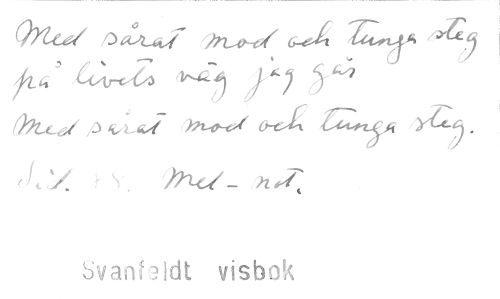 Med sårat mod och tunga steg
på livets väg jag går
Med sårat mod och tunga steg.
Sid. 88. Mel-not.
Svanfeldt visbok